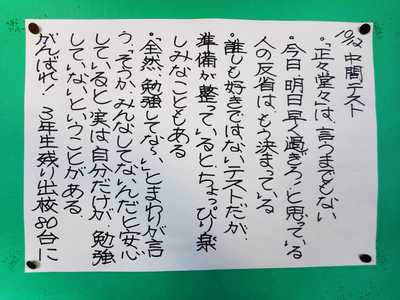 10/12 中間テスト
・「正々堂々」は、言うまでもない
・今日、明日早く過ぎろ、と思っている
人の反省は、もう決まっている
・誰しも好きではないテストだが、
準備が整っていると、ちょっぴり楽
しみなこともある
・「全然、勉強してない」とまわりが言
う。「そうか、みんなしてないんだと安心
していると、実は自分だけが、勉強
していない、ということがある
がんばれ! 3年生残り出校80台に